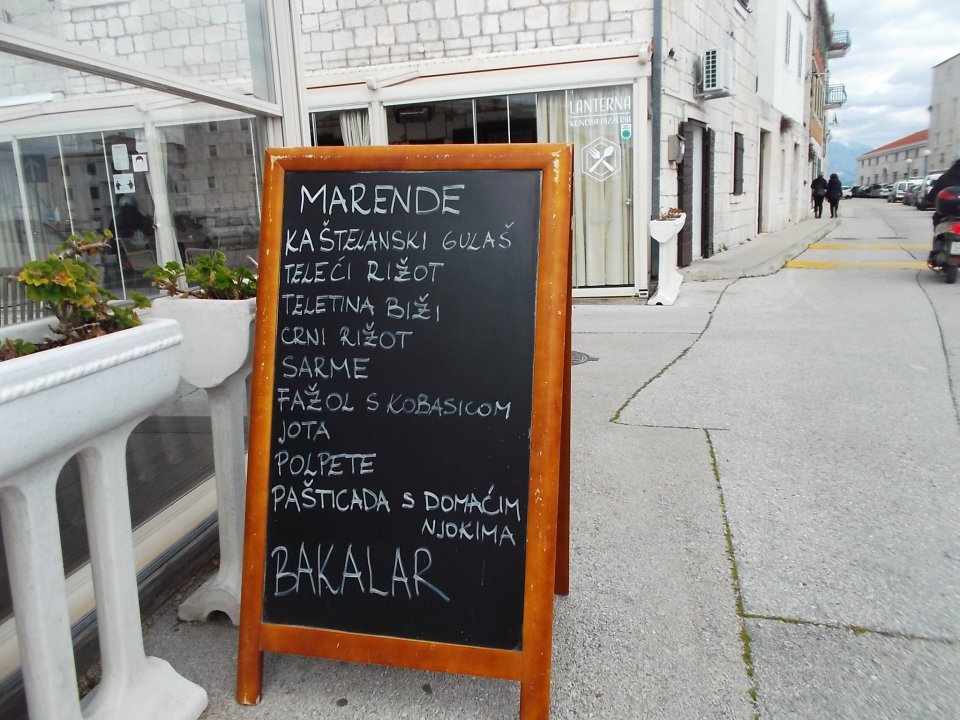 MARENDE
KAŠTELANSKI GULAŠ
TELEĆI RIŽOT
TELETINA BIŽI
CRNI RIŽOT
SARME
FAŽOL S KOBASICOM
JOTA
POLPETE
PAŠTICADA S DOMAĆIM
NJOKIMA
BAKALAR
LANTERNA
KONOBA-PIZZERIA